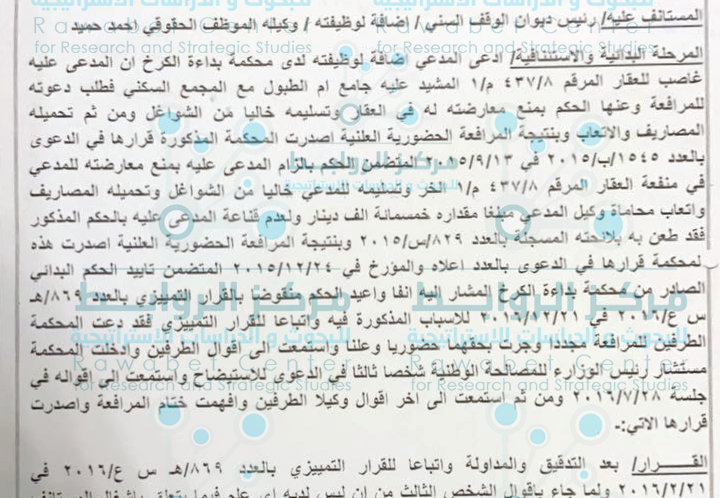 المستانف عليه/ رئيس ديوان الوقف السني / إضافة لوظيفته / وكيله الموظف الحقوقي احمد حميد
المرحلة البدائية والاستئنافية/ ادعى المدعي إضافة لوظيفته لدى محكمة بداءة الكرخ ان المدعى عليه
غاصب للعقار المرقم ٤٣٧/٨ م/١ المشيد عليه جامع ام الطبول مع المجمع السكني فطلب دعوته
للمرافعة وعنها الحكم بمنع معارضته له في العقار وتسليمه خاليا من الشواغل ومن ثم تحميله
المصاريف والاتعاب وبنتيجة المرافعة الحضورية العلنية اصدرت المحكمة المذكورة قرارها في الدعوى
بالعدد ١٥٤٥/ب/٢٠١٥ في ٢٠١٥/٩/١٣ المتضمن الحكم بالزام المدعى عليه بمنع معارضته للمدعي
في منفعة العقار المرقم ٤٣٧/٨ م/١ الخر وتسليمه للمدعي خاليا من الشواغل وتحميله المصاريف
واتعاب محاماة وكيل المدعي مبلغا مقداره خمسمائة الف دينار ولعدم قناعة المدعى عليه بالحكم المذكور
فقد طعن به بلائحته المسجلة بالعدد ٨٢٩/س/٢٠١٥ وبنتيجة المرافعة الحضورية العلنية اصدرت هذه
لمحكمة قرارها في الدعوى بالعدد اعلاه والمؤرخ في ٢٠١٥/١٢/٢٤ المتضمن تاييد الحكم البدائي
الصادر من محكمة بداءة الكرخ المشار اليه انفا واعيد الحكم منقوضا بالقرار التمييزي بالعدد ٨٦٩/هـ
س ع/٢٠١٦ في للاسباب المذكورة فيه واتباعا للقرار التمييزي فقد دعت المحكمة
الطرفين للمرافعة مجددا وجرت بحقهما حضوريا وعلنا واستمعت الى اقوال الطرفين وادخلت المحكمة
مستشار رئيس الوزارء للمصالحة الوطنية شخصا ثالثا في الدعوى للاستيضاح واستمعت الى اقواله في
جلسة ٢٠١٦/٧/٢٨ ومن ثم استمعت الى اخر اقوال وكيلا الطرفين وافهمت ختام المرافعة واصدرت
قرارها الاتي:-
القـــــرار/ بعد التدقيق والمداولة واتباعا للقرار التمييزي بالعدد ٨٦٩/هـ س ع/٢٠١٦ في
٢٠١٦/٢/٢١ ولما جاء باقوال الشخص الثالث من ان ليس لديه اي علم فيما يتعلق باشغال المستانف
مركز الروابط
للبحوث و الدراسات الاستراتيجية
Rawabet Center
for Research and Strategic Studies